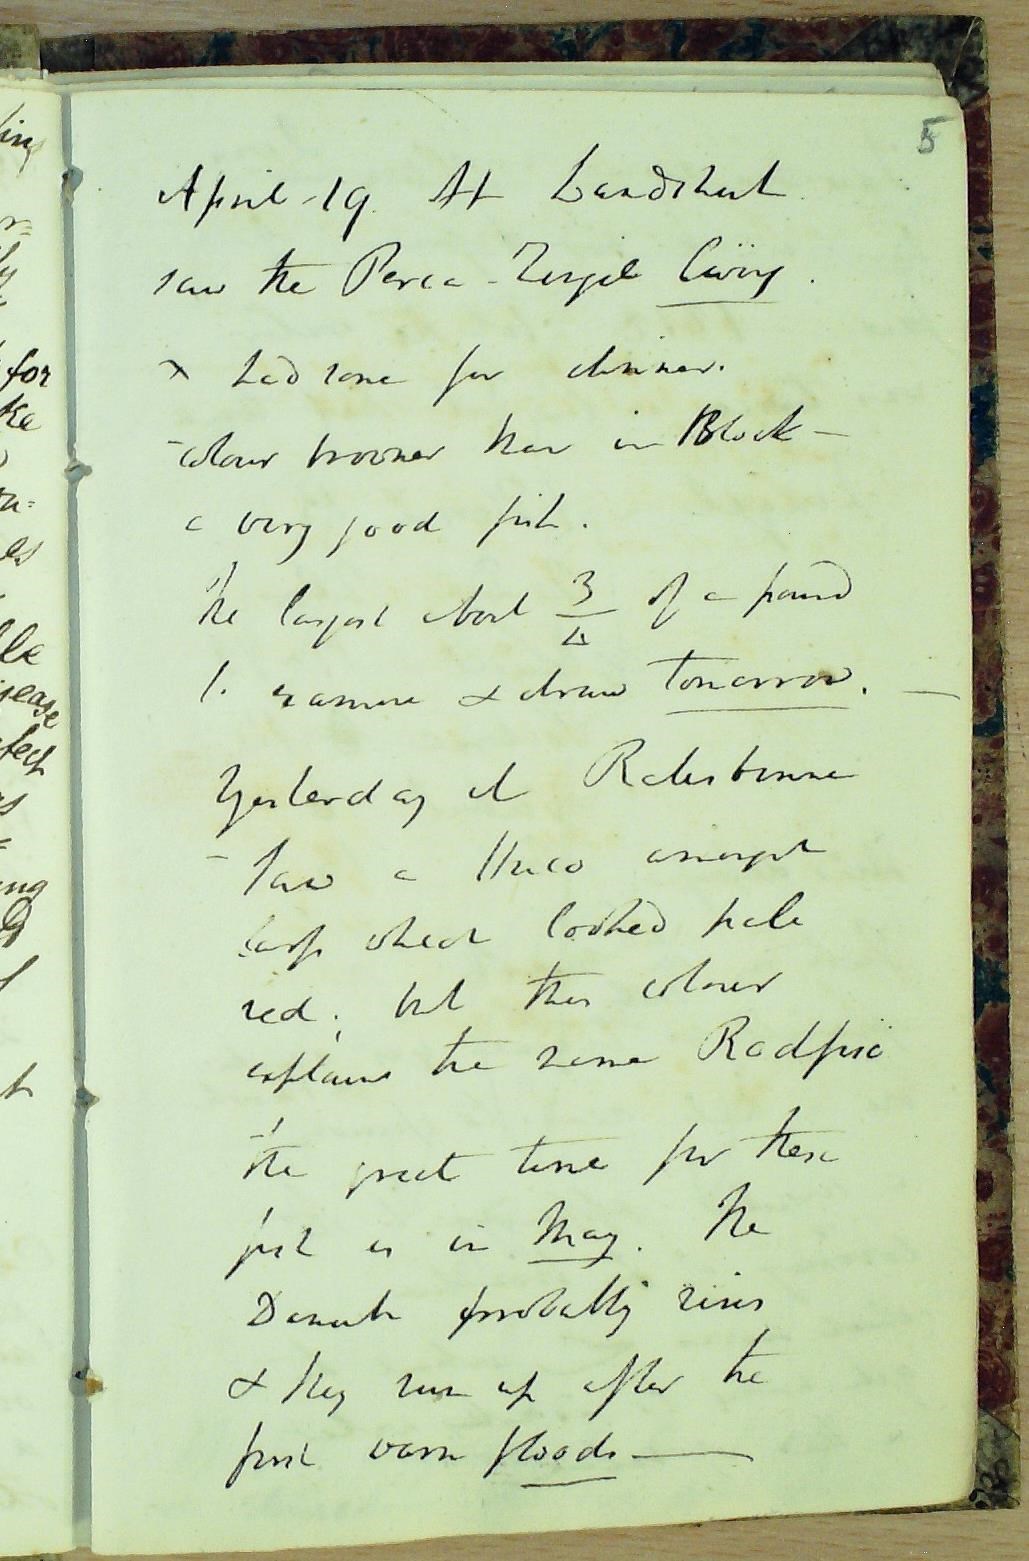 5
April 19. At Landshut
saw the Perca-Zingel living.
& had some for dinner.
colour browner than in Block -
a very good fish.
The largest about 3/4 of a pound
to examine & draw tomorrow. -
Yesterday at Ratisbonne
- saw a Huco amongst
carp which looked pale
red; but this colour
explains the name Rodfisc
The great time for these
fish is in May. The
Danube probably rises
& they run up after the
first warm floods -
ing
for
ke
es
ble
isease
fect
ing